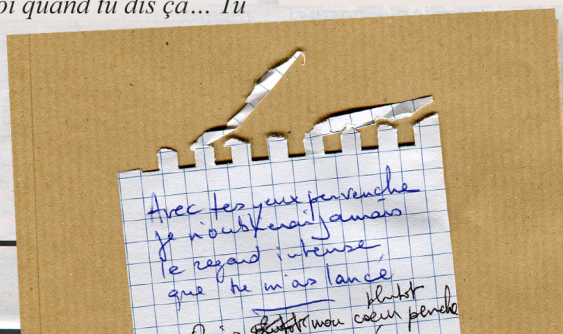 oi quand tu dis ça... Tu
Avec tes yeux pervenche
je n'oublierai jamais
le regard intense
que tu m'as lancé
plutôt
mon coeur penche